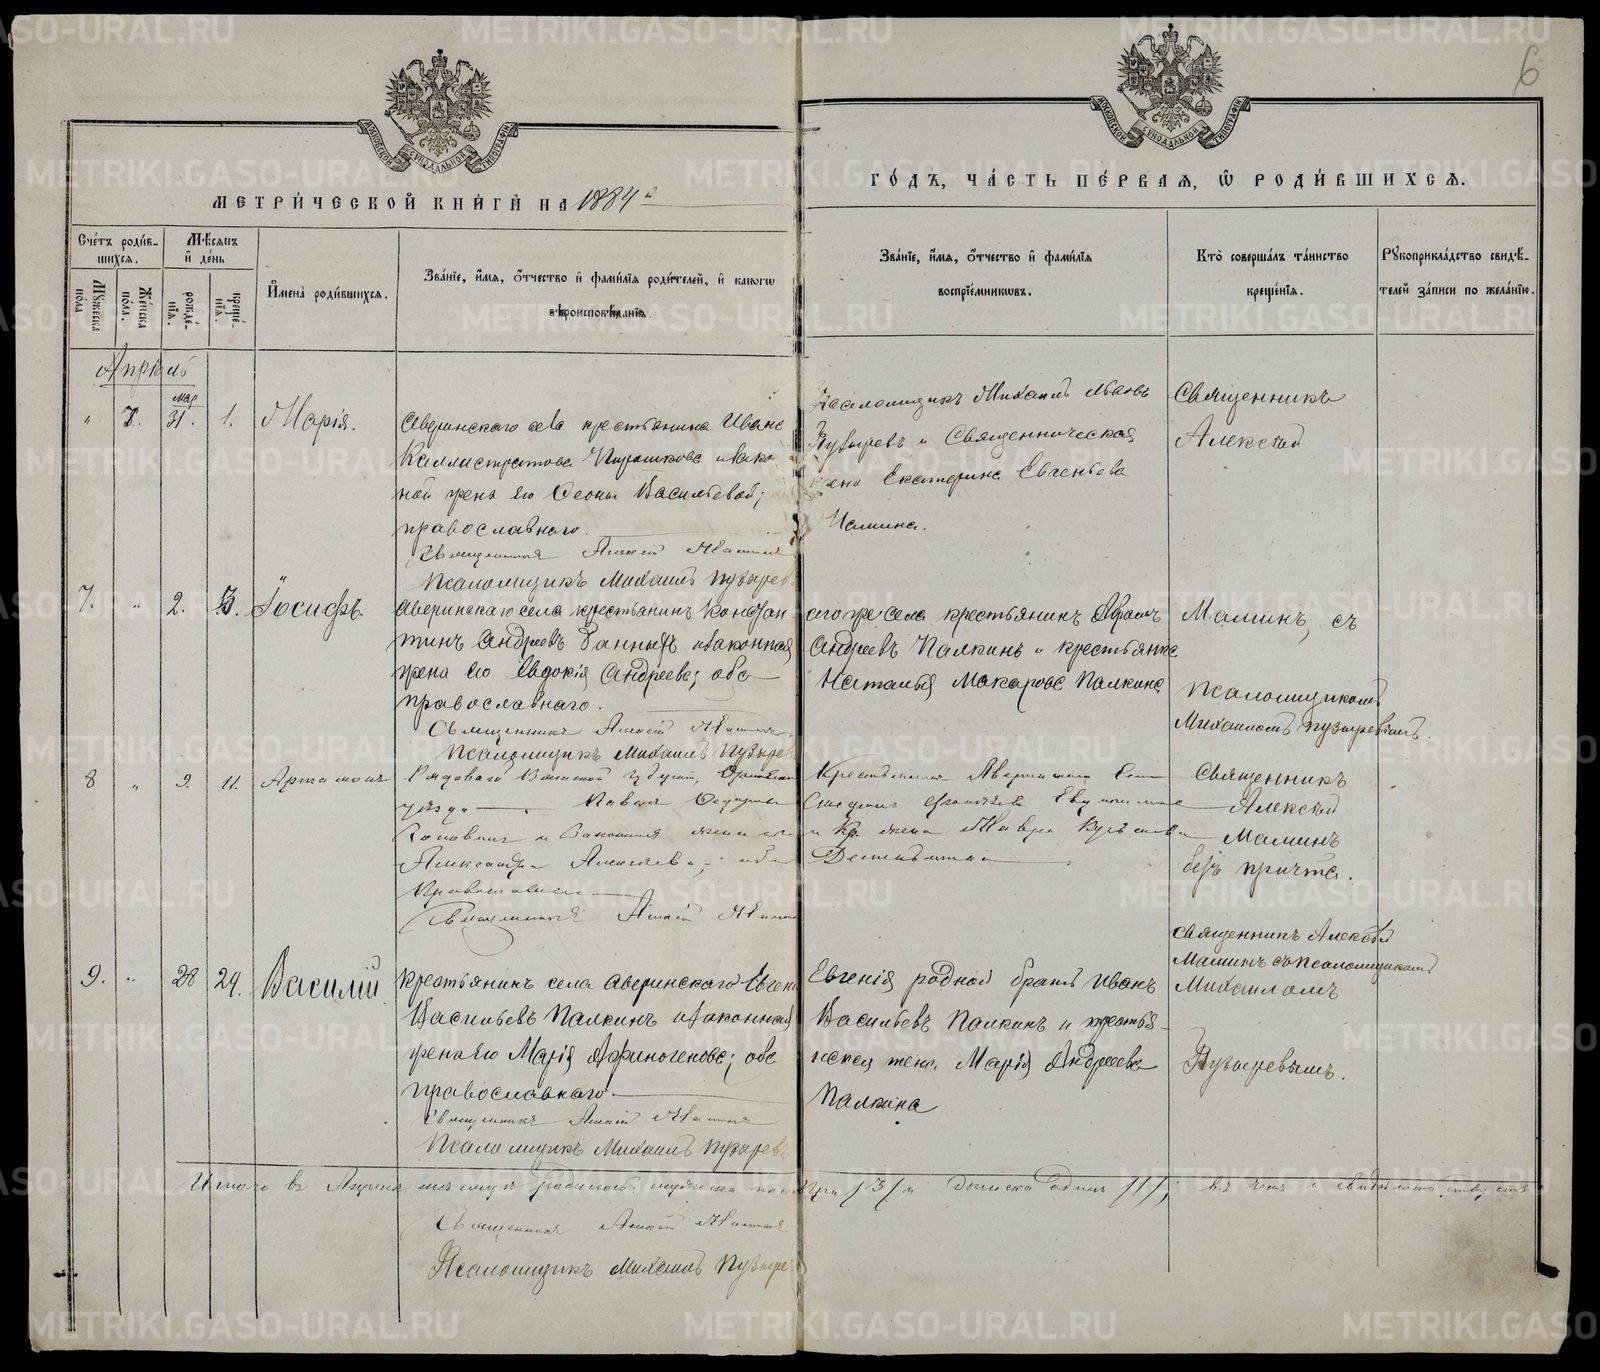 6
МОСКОВСКОЙ СѴНОДАЛЬНОЙ ТИПОГРАФІИ
МОСКОВСКОЙ СѴНОДАЛЬНОЙ ТИПОГРАФІИ
МЕТРИ́ЧЕСКОЙ КНИ́ГИ НА 1884й
ГО́ДЪ, ЧА́СТЬ ПЕ́РВАЯ, Ѡ РОДИ́ВШИХСЯ.
Сче́тъ роди́в-
шихся.
Му́жеска по́ла
Же́нска по́ла.
Мѣ́сяцъ и де́нь
рожде́нія.
креще́нія.
И҆мена̀ роди́вшихся.
Зва́нїе, и҆́мя, ѻ҆́тчество и҆ фами́лїя роди́телей, и҆ какогѡ
вѣроисповѣ́данїя.
Зва́нїе, и҆́мя, ѻ҆́тчество и҆ фами́лїя
воспрїе́мникѡвъ.
Кто̀ соверша́лъ та́инство
креще́нїя.
Рꙋкоприкла́дство свидѣ́-
телей за́писи по жела́нїю.
Апрѣль
мар
" 7. 31. 1. Марія.
Аверинскаго села крестьянина Ивана
Каллистратова
ной жена его Васильевой;
православнаго.
Священникъ Алексій Маминъ
Псаломщикъ Михаилъ Пузырев
Псаломщикъ Михаилъ Львовъ
Пузыревъ и Священническая
жена Екатерина Евгеньева
Мамина.
Священникъ
Алексій
7. " 2. 3. Іосифъ
Аверинскаго села крестьянинъ Констан
тинъ Андреевъ и законная
жена его Евдокія Андреева; оба
православнаго.
Священникъ Алексій Маминъ
Псаломщикъ Михаилъ Пузырев
Андреевъ Палкинъ и крестьянка
Наталья Макарова Палкина
Маминъ, съ
Псаломщикомъ
Михаиломъ Пузыревымъ.
8 " 9. 11. Артамонъ
Рядоваго Вятской губерніи,
уѣзда Павелъ
и Законная жена его
Александра Алексѣева; оба
Православнаго
Священникъ Алексій Мамин
Крестьянинъ Аверинскаго Села
и Кр. жена
Священникъ
Алексій
Маминъ
безъ причта.
9. " 28 29. Василій
Крестьянинъ села Аверинскаго Евгеній
Васильевъ Палкинъ и законная
жена его Марія Афиногенова; оба
православнаго.
Священникъ Алексій Маминъ
Псаломщикъ Михаилъ Пузырев
Евгенія родной братъ Иванъ
Васильевъ Палкинъ и крестья-
нская жена Марія Андреева
Палкина
Священникъ Алексій
Маминъ съ псаломщикомъ
Михаиломъ
Пузыревымъ.
Итого въ Апрелѣ мѣсяцѣ родилось мужеска пола три /3/ и женска одинъ /1/; въ чемъ и свидѣтельствуемъ
Священникъ Алексій Маминъ
Псаломщикъ Михаилъ Пузыре
METRIKI.GASO-URAL.RU